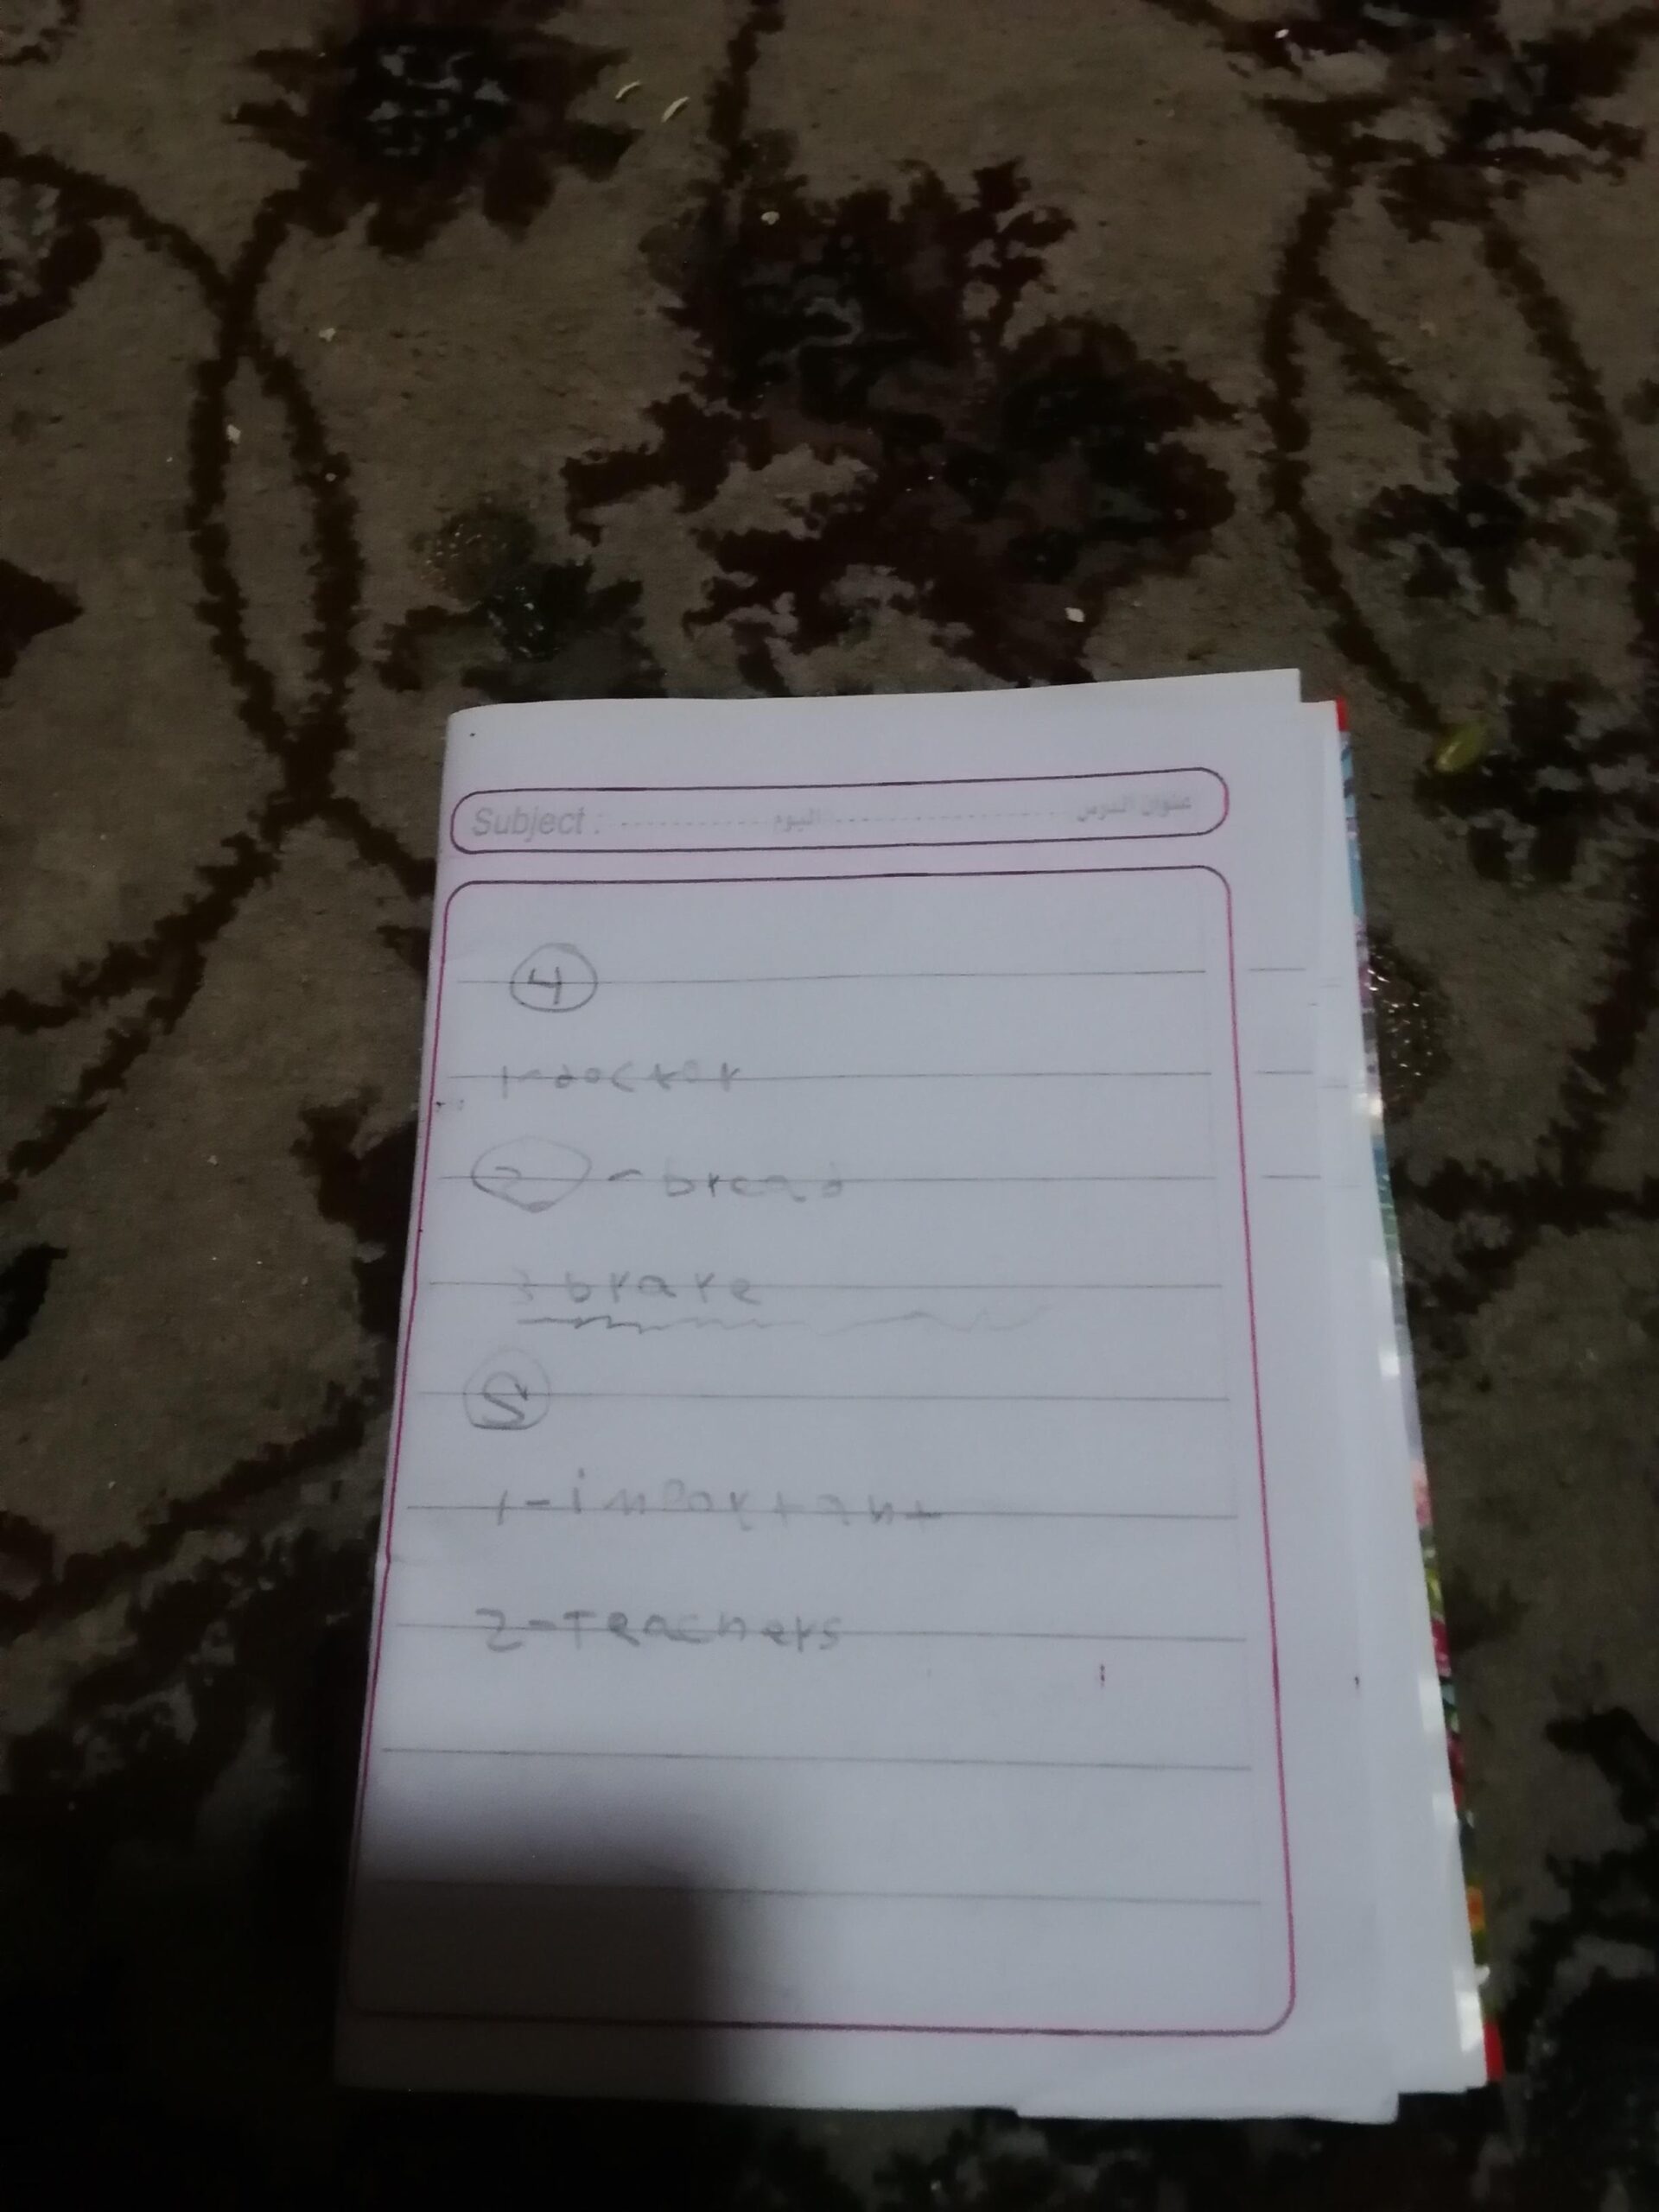 Subject : اليوم عنوان الدرس
4
1-doctor
2-bread
3 brave
5
1-important
2-Teachers